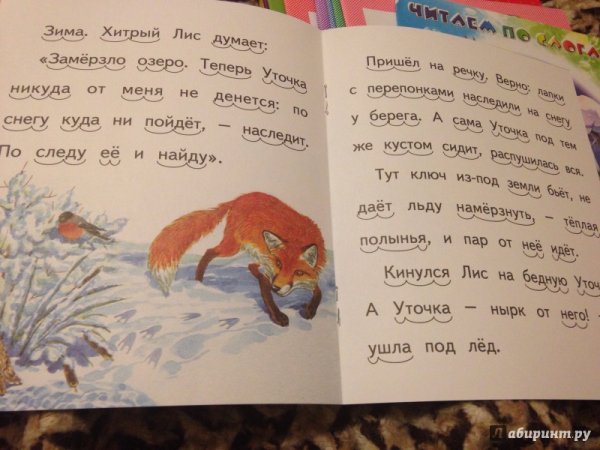 ЧИТАЕМ ПО СЛОГА
Зима. Хитрый Лис думает:
«Замёрзло озеро. Теперь Уточка
никуда от меня не денется: по
снегу куда ни пойдёт, — наследит.
По следу её и найду».
Пришёл на речку. Верно: лапки
с перепонками наследили на снегу
у берега. А сама Уточка под тем
же кустом сидит, распушилась вся.
Тут ключ из-под земли бьёт, не
даёт льду намёрзнуть, — тёплая
полынья, и пар от неё идёт.
Кинулся Лис на бедную Уточ
А Уточка — нырк от него! —
ушла под лёд.
Лабиринт.ру